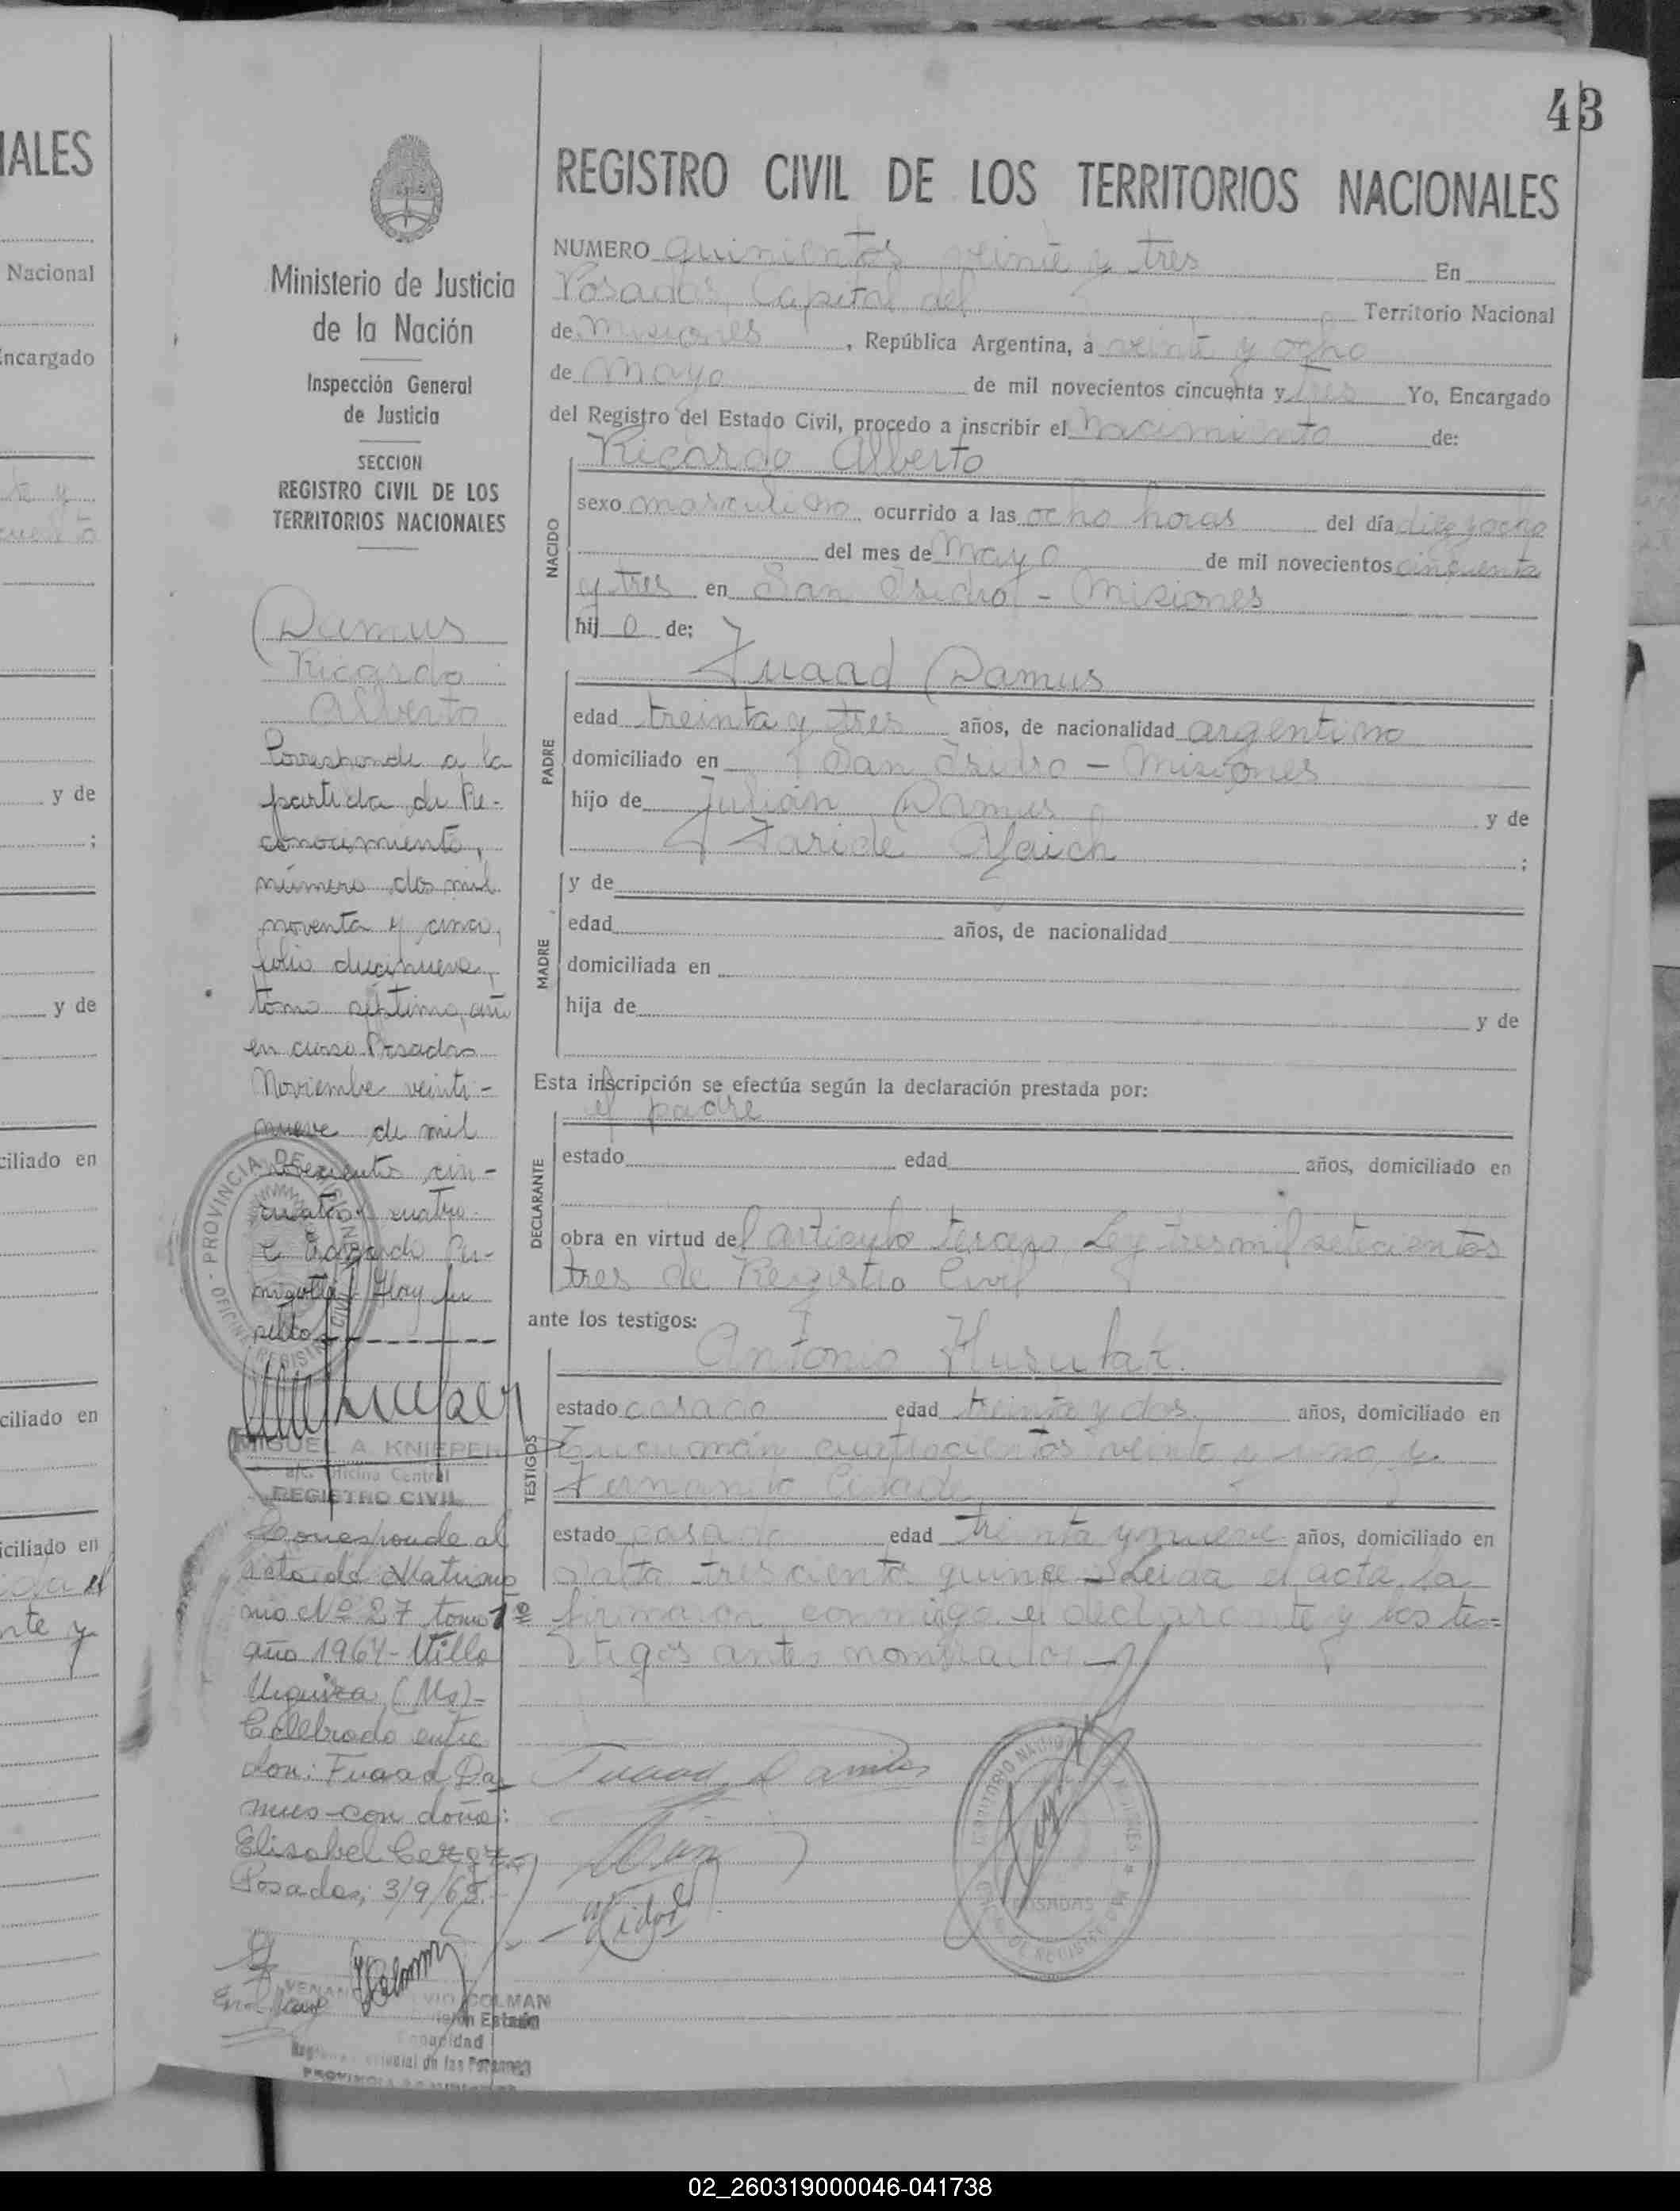 43
IALES
Nacional
Encargado
y de
;
y de
ciliado en
ciliado en
iciliado en
nte y
Ministerio de Justicia
de la Nación
Inspección General
de Justicia
SECCION
REGISTRO CIVIL DE LOS
TERRITORIOS NACIONALES
Damus
Ricardo
Alberto
Corresponde a la
partida de Re-
conocimiento,
número dos mil
noventa y cinco,
folio diecinueve,
tomo séptimo, año
en curso. Posadas
Noviembre veinti-
nueve de mil
novecientos cin-
cuenta y cuatro.
PROVINCIA DE MISIONES
OFICINA REGISTRO CIVIL
MIGUEL A. KNIEPER
a/c. Oficina Central
REGISTRO CIVIL
Corresponde al
acta de Matrimo
nio Nº 27 tomo 1º
año 1964 - Villa
Urquiza (Ms)-
Celebrado entre
don: Fuaad Da-
mus - con doña:
Elisabel
Posadas, 3/9/65.
COLMAN
Capacidad
de las Personas
REGISTRO CIVIL DE LOS TERRITORIOS NACIONALES
NUMERO quinientos veinte y tres En
Posadas, Capital del Territorio Nacional
de Misiones, República Argentina, a veinte y ocho
de Mayo de mil novecientos cincuenta y tres Yo, Encargado
del Registro del Estado Civil, procedo a inscribir el Nacimiento de:
Ricardo Alberto
NACIDO
sexo masculino ocurrido a las ocho horas del día diez y ocho
del mes de Mayo de mil novecientos cincuenta
y tres en San Isidro - Misiones
hijo de:
PADRE
Fuaad Damus
edad treinta y tres años, de nacionalidad argentino
domiciliado en San Isidro - Misiones
hijo de Julián Damus y de
Faride Afaich ;
MADRE
y de
edad años, de nacionalidad
domiciliada en
hija de y de
Esta inscripción se efectúa según la declaración prestada por:
el padre
DECLARANTE
estado edad años, domiciliado en
obra en virtud del articulo tercero Ley tres mil setecientos
tres de Registro Civil
ante los testigos:
TESTIGOS
Antonio Husulak.
estado casado edad treinta y dos años, domiciliado en
Tucumán cuatrocientos veinte y uno y
Fernando
estado casado edad treinta y nueve años, domiciliado en
Salta trescientos quince - Leida el acta, la
firmaron conmigo el declarante y los tes=
tigos antes nombrados
Fuaad Damus
POSADAS
02_260319000046-041738